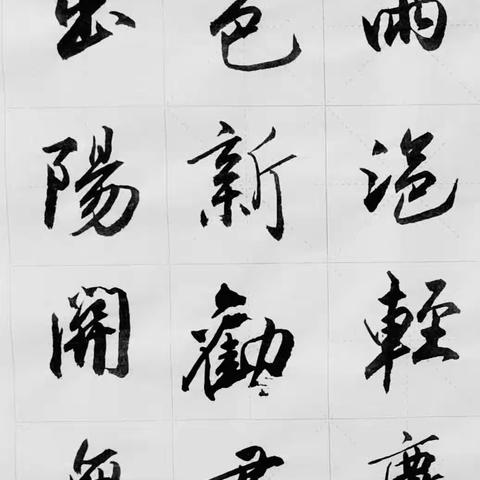 雨浥輕塵
色新勸君
出陽關無